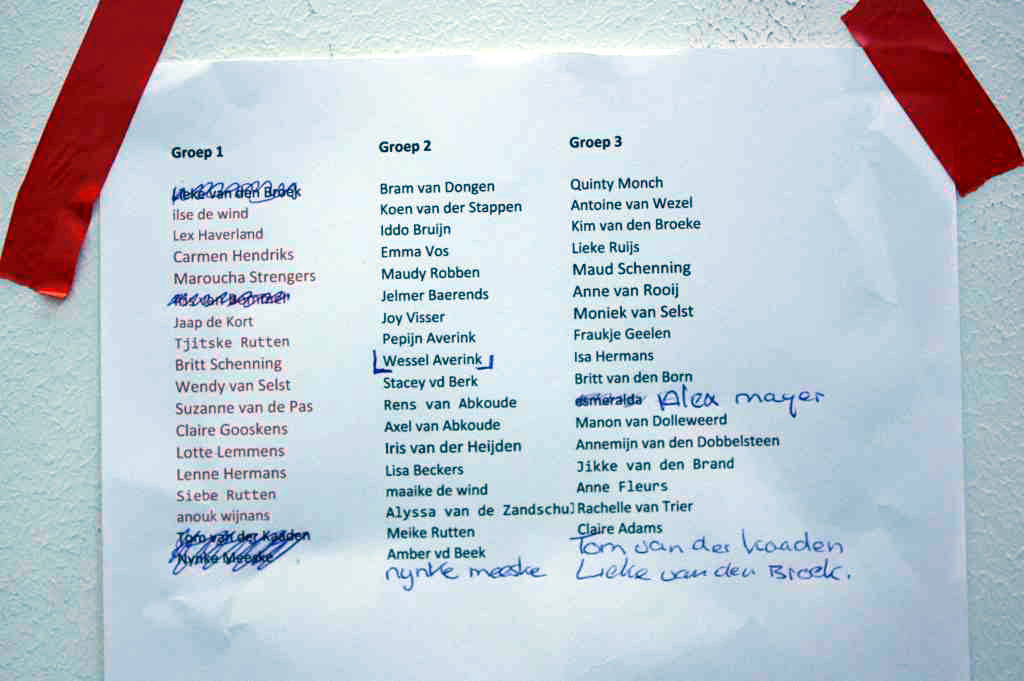 Groep 1
Lieke van den Broek
ilse de wind
Lex Haverland
Carmen Hendriks
Maroucha Strengers
Jaap de Kort
Tjitske Rutten
Britt Schenning
Wendy van Selst
Suzanne van de Pas
Claire Gooskens
Lotte Lemmens
Lenne Hermans
Siebe Rutten
anouk wijnans
Tom van der Kaaden
Nynke Meeske
Groep 2
Bram van Dongen
Koen van der Stappen
Iddo Bruijn
Emma Vos
Maudy Robben
Jelmer Baerends
Joy Visser
Pepijn Averink
Wessel Averink
Stacey vd Berk
Rens van Abkoude
Axel van Abkoude
Iris van der Heijden
Lisa Beckers
maaike de wind
Alyssa van de Zandschul
Meike Rutten
Amber vd Beek
nynke meeske
Groep 3
Quinty Monch
Antoine van Wezel
Kim van den Broeke
Lieke Ruijs
Maud Schenning
Anne van Rooij
Moniek van Selst
Fraukje Geelen
Isa Hermans
Britt van den Born
esmeralda Alex mayer
Manon van Dolleweerd
Annemijn van den Dobbelsteen
Jikke van den Brand
Anne Fleurs
Rachelle van Trier
Claire Adams
Tom van der Kaaden
Lieke van den Broek.